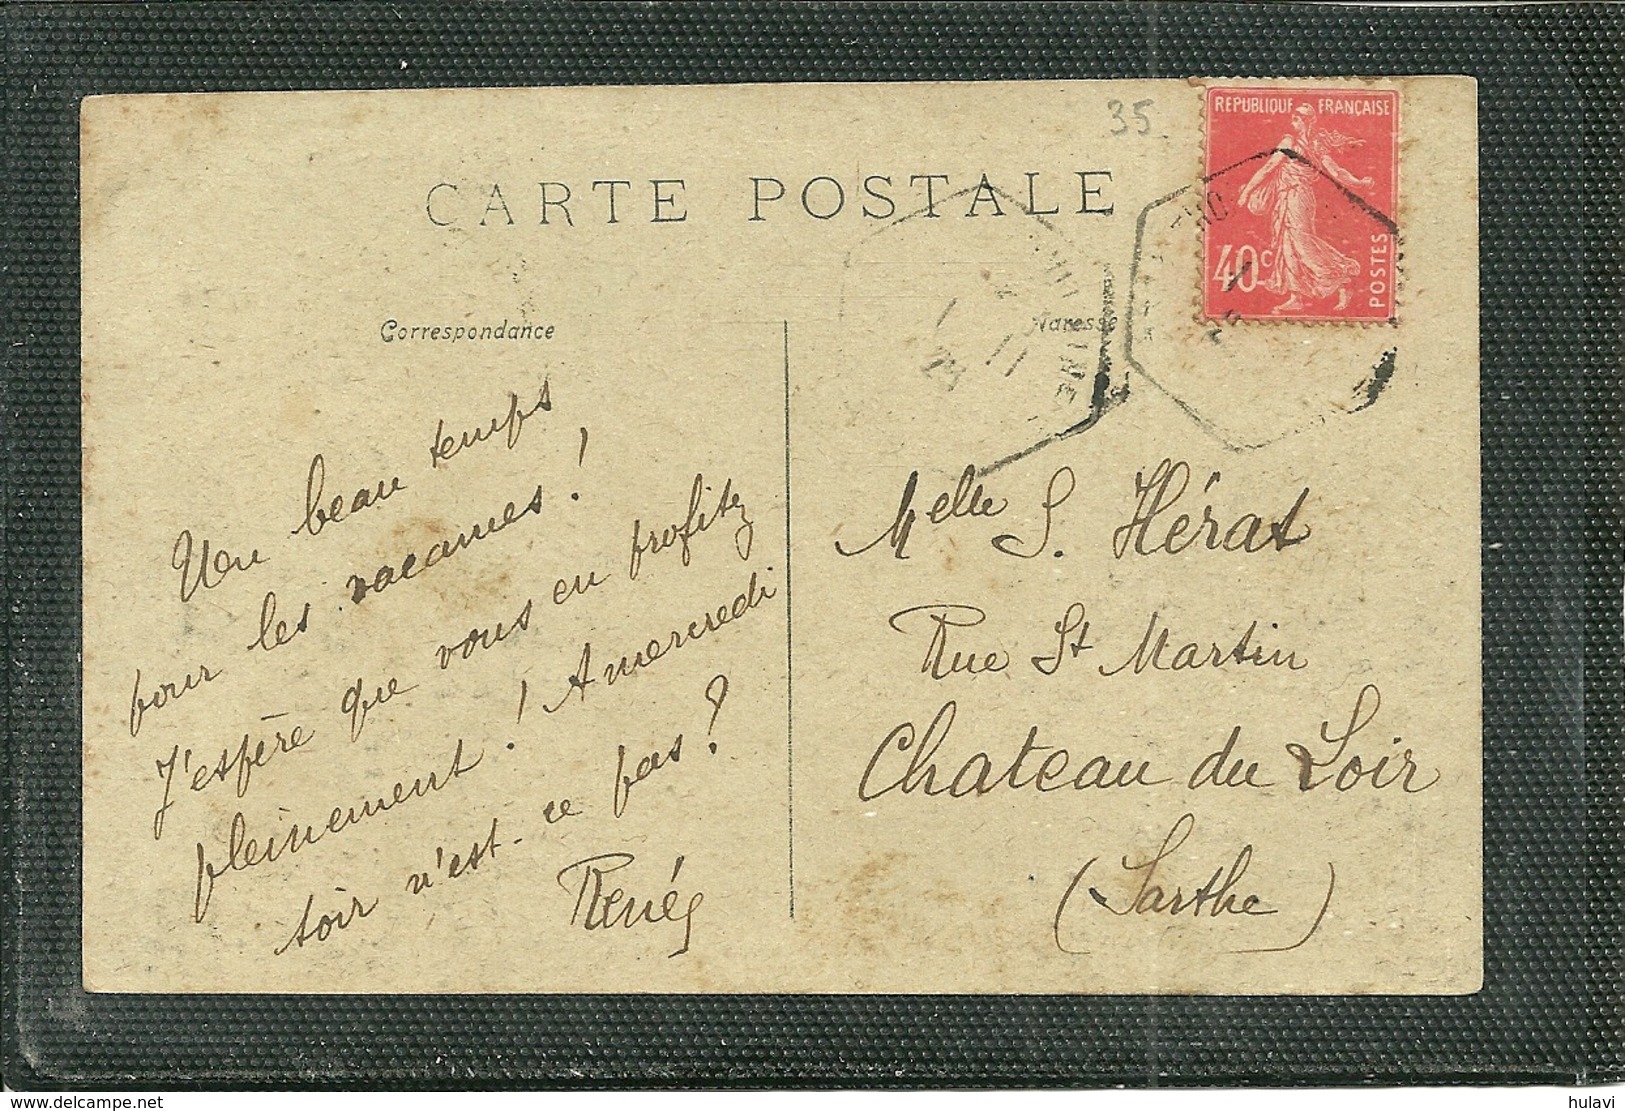 35
REPUBLIQUE FRANÇAISE
40c
POSTES
CARTE POSTALE
Correspondance
Adresse
Un beau temps
pour les vacances !
J'espère que vous en profitez
pleinement ! A mercredi
soir n'est-ce pas ?
René
Melle S. Hérat
Rue St Martin
Chateau du Loir
(Sarthe)
delcampe.net
hulavi